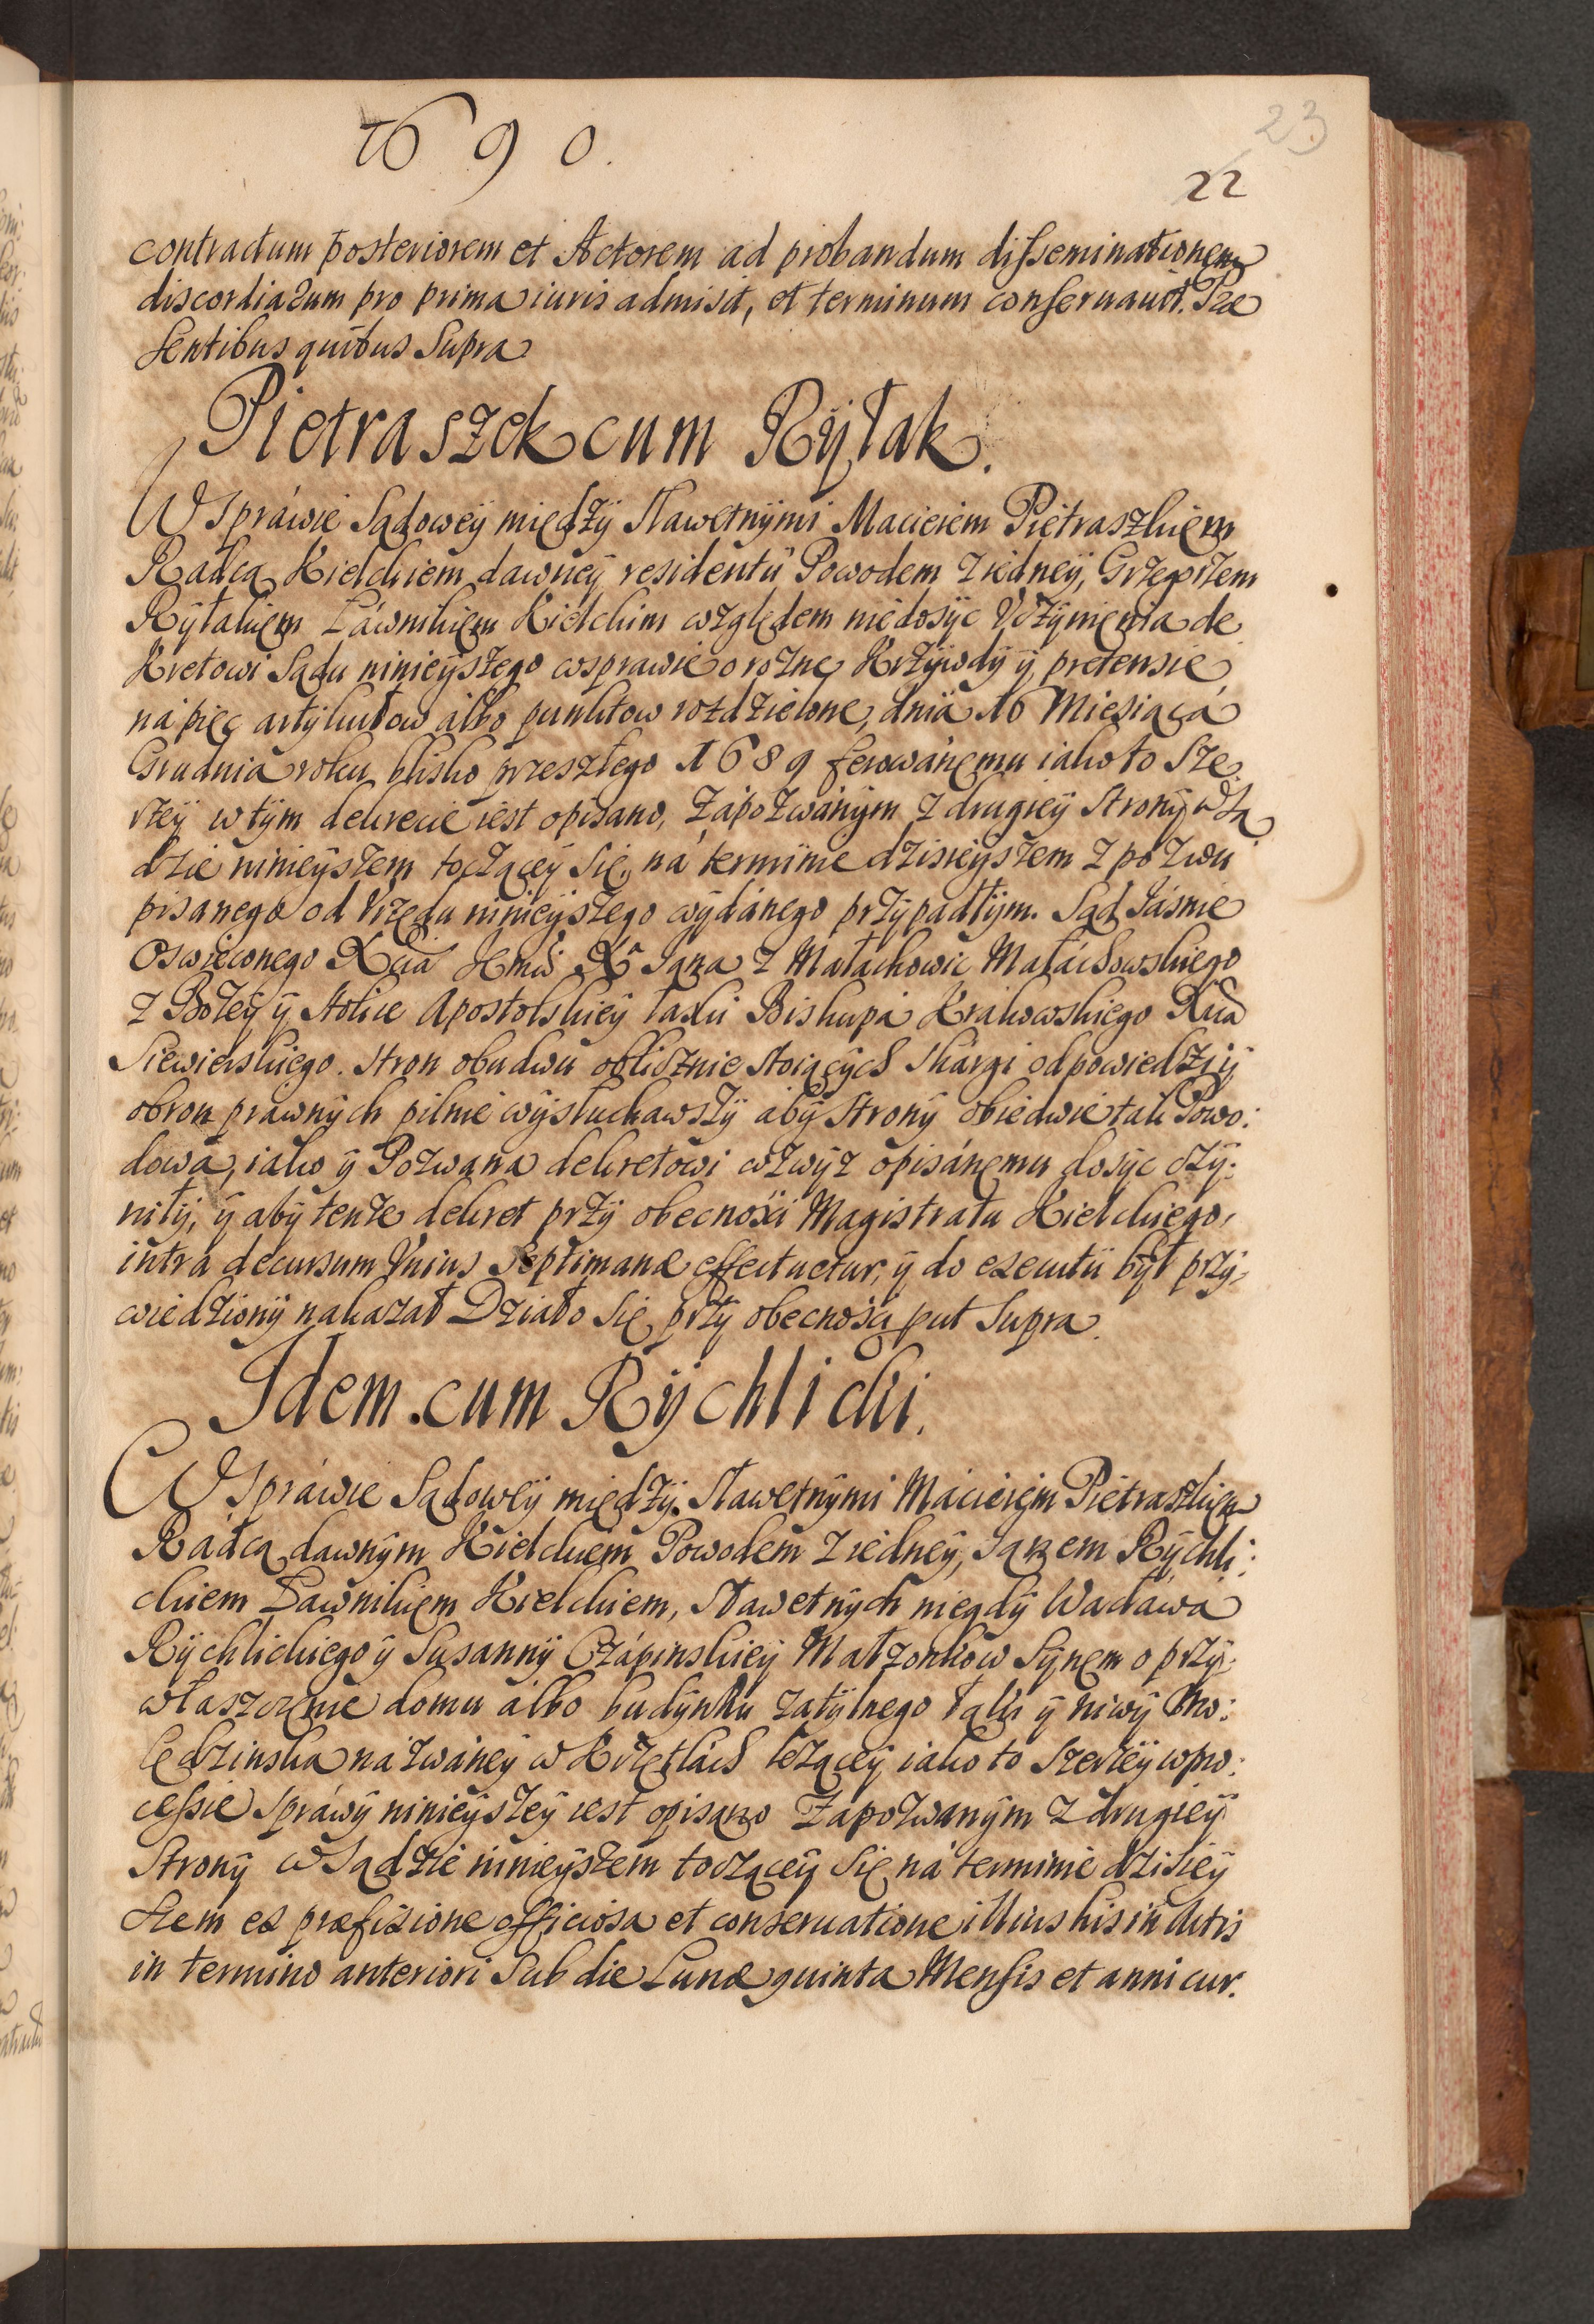 1690.
23
22
contractum posteriorem et Actorem ad probandum disseminationem
discordiarum pro prima iuris admisit, et terminum conseruauit. Præ
sentibus quibus Supra
Pietraszek cum Rÿtak.
W Spráwie Sądoweÿ międzÿ Sławetnÿmi Macieiem Pietraszkiem
Raẏcą Kieleckiem dawneÿ residentÿ Powodem z iedneÿ, Grzegorzem
Rÿtakiem Ławnikiem Kieleckim względem niedosÿc Vczÿnienia de
kretowi Sądu ninieÿszego wsprawie o rożne Krzÿwdÿ ÿ pretensie
ná pięc artÿkułow álbo punktow rozdzielone, dniá 16 Miesiącá
Grudniá roku blisko przeszłego 1689 ferowánemu iako to Sze
rzeÿ w tÿm dekrecie iest opisano, Zápozwánÿm z drugieÿ Stronÿ w Są
dzie ninieÿszem toczącey Się, ná terminie dzisieÿszem z pozwu
pisanego od Vrzędu ninieÿszego wÿdánego przÿpadłÿm. Sąd Jásnie
Oswieconego Xcia Jmci Xa Jana z Małachowic Małáchowskiego
z Bożeÿ ÿ Stolice Apostolskieÿ łaski Biskupá Krakowskiego Xcia
Siewierskiego. Stron obudwu oblicznie stoiącÿch Skárgi odpowiedzi ÿ
obron prawnÿch pilnie wÿsłuchawszÿ abÿ stronÿ obiedwie tak Powo:
dowa, iako ÿ Pozwana dekretowi wzwÿz opisánemu dosÿc czÿ:
niłÿ, ÿ abÿ tenże dekret przÿ obecności Magistratu Kieleckiego,
intra decursum Vnius Septimanæ effectuetur, ÿ do exekutii bÿł przÿ:
wiedzionÿ nakazał Działo Się przÿ obecnoscÿ ut Supra.
Idem cum Rÿchlicki.
W Spráwie Sądoweÿ międzÿ Sławetnÿmi Macieiem Pietraszkiem
Ráẏcą dawnÿm Kieleckiem Powodem z iedneÿ, Janem Rÿchli:
ckiem Ławnikiem Kieleckiem, Sławetnÿch niegdÿ Wacława
Rÿchlickiego ÿ Susannÿ Czápinskieÿ Małzonkow Sÿnem o przÿ:
właszczenie domu álbo budÿnku zatÿlnego tak ÿ niwÿ
ledzinska názwáneÿ w leżąceÿ iako to szerzeÿ wpro:
cessie Spráwÿ ninieÿszeÿ iest opisano Zapozwanÿm z drugieÿ
Stronÿ w Sądzie ninieÿszem toczącey Się ná terminie dzisieÿ
szem ex præfixione officiosa et conseruatione illius his in Actis
in termino anteriori Sub die Lunæ quinta Mensis et anni cur.